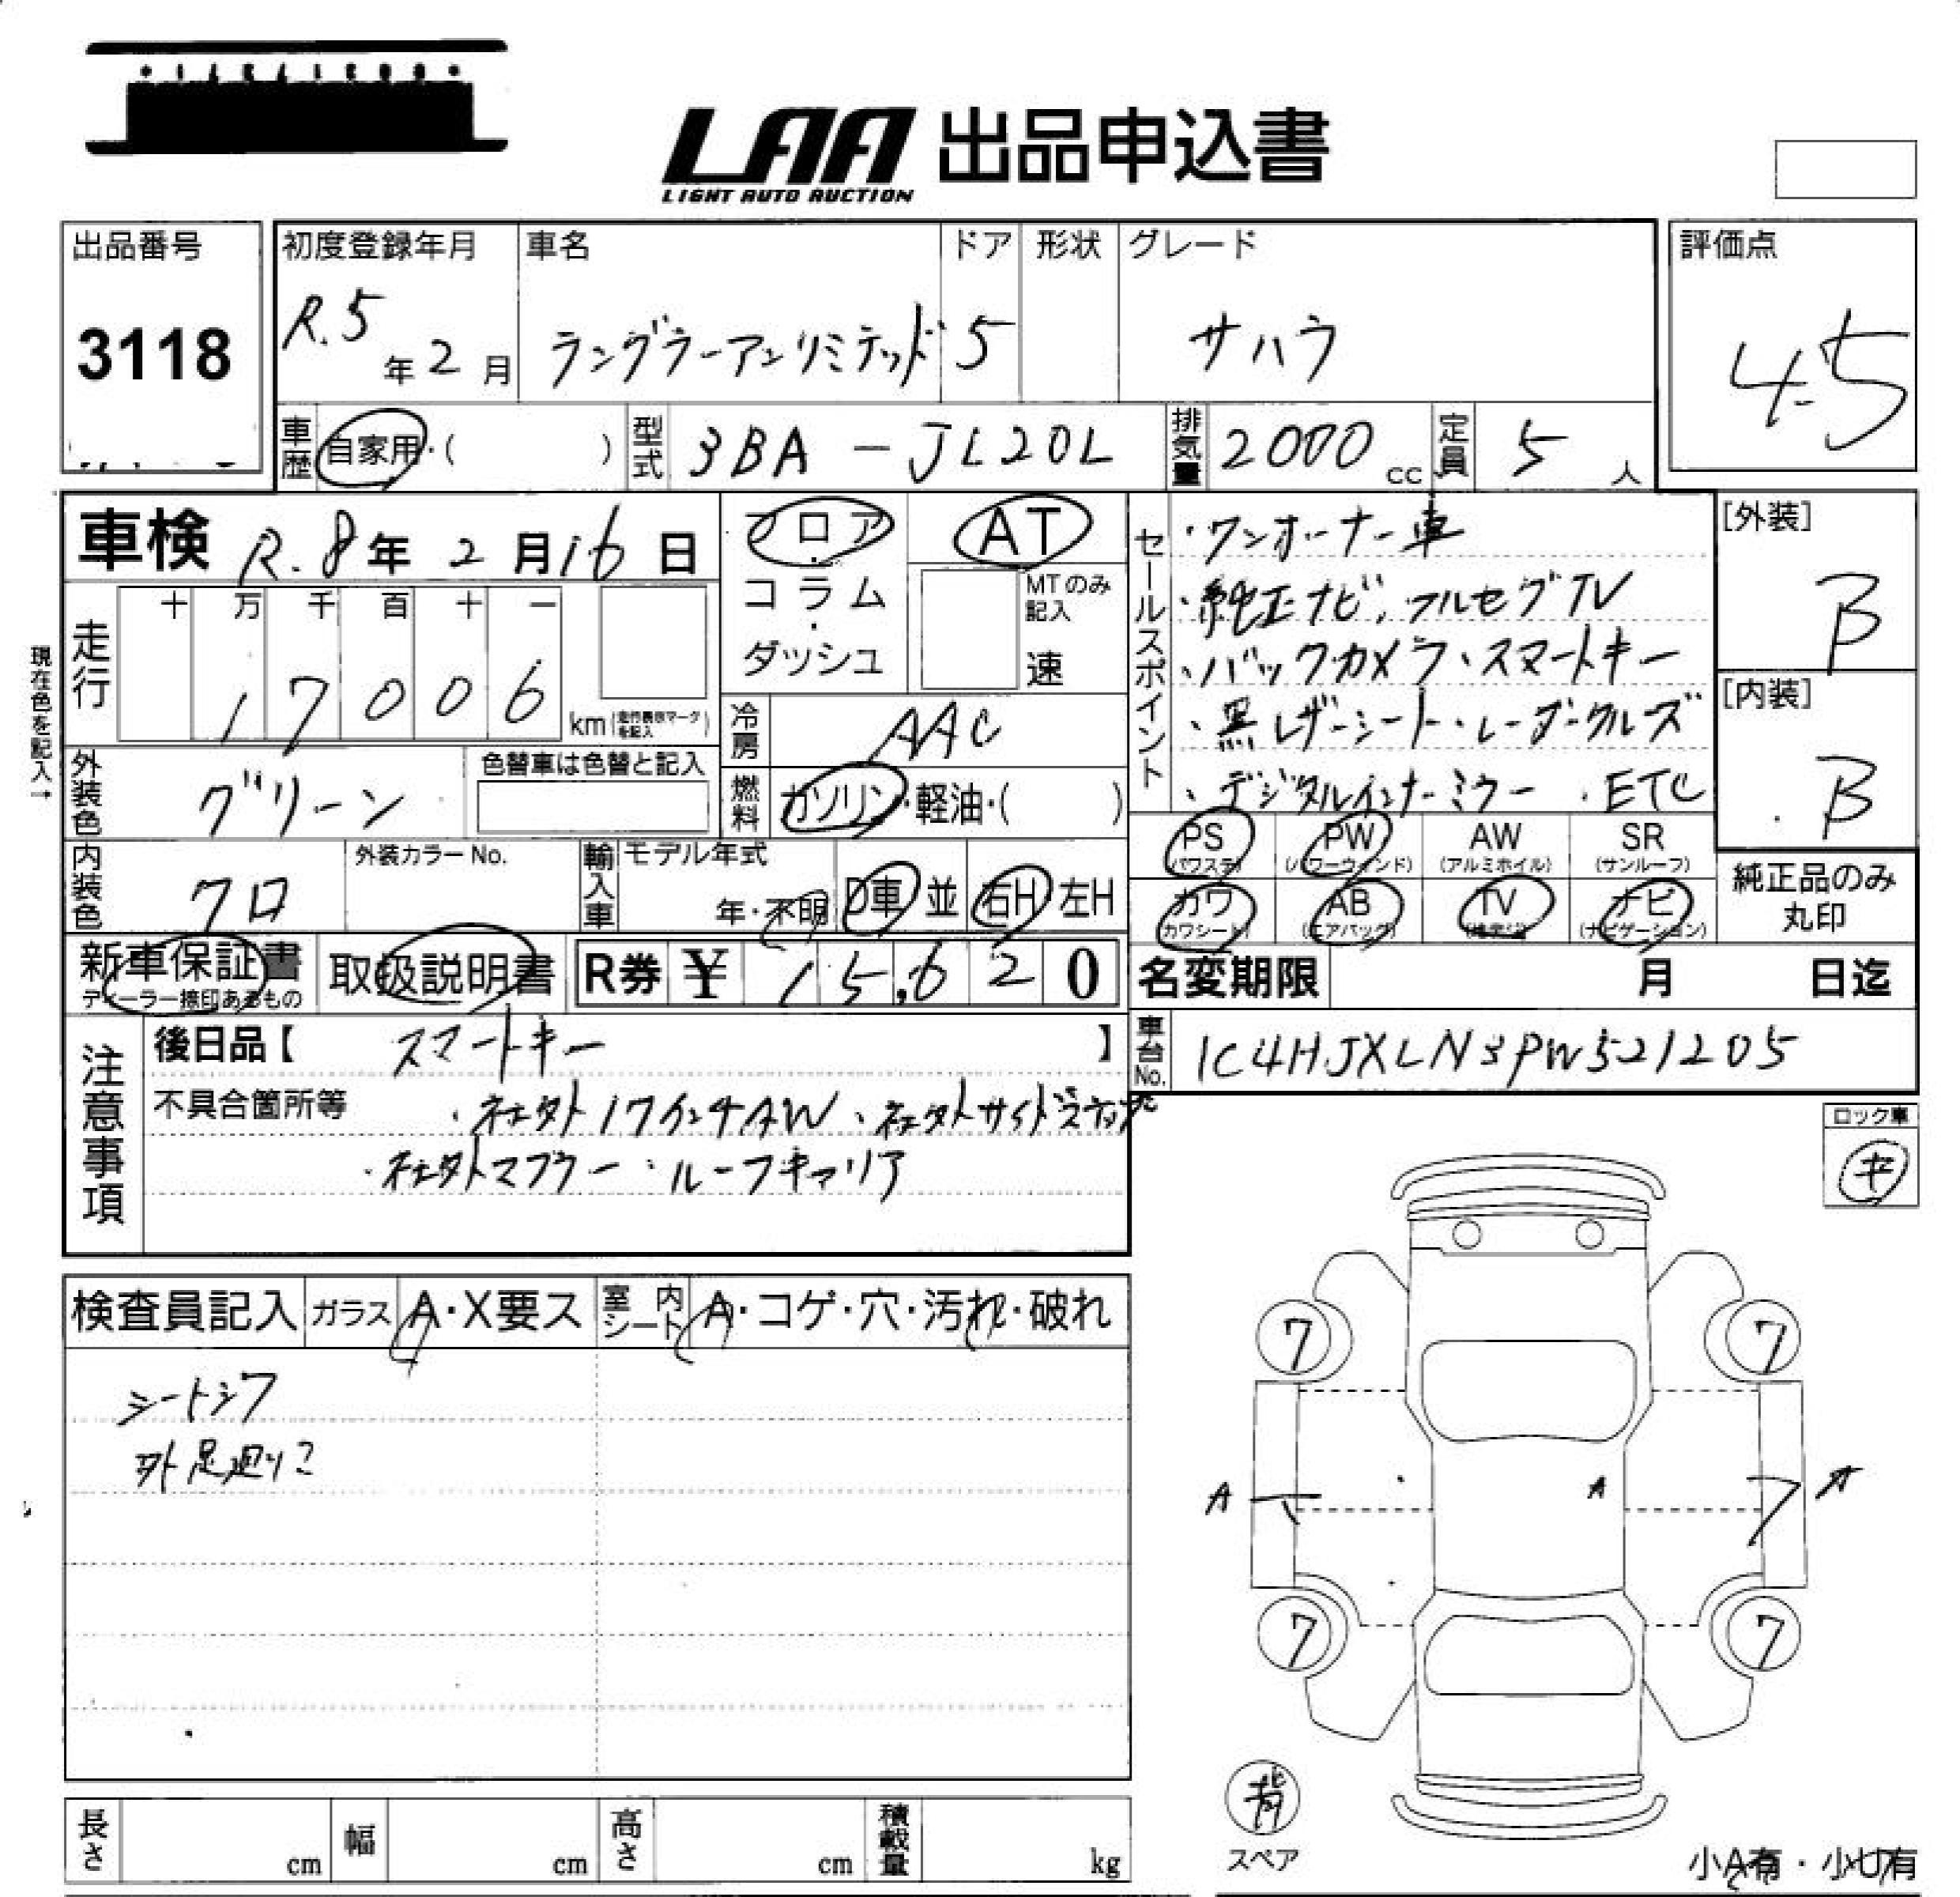 LAA 出品申込書
LIGHT AUTO AUCTION
出品番号
3118
初度登録年月
R.5年2月
車名
ラングラーアンリミテッド
ドア
5
形状
グレード
サハラ
評価点
4.5
車歴 自家用・( )
型式 3BA-JL20L
排気量 2000cc
定員 5人
車検 R.8年2月16日
現在色を記入→
走行
十 万 千 百 十 一
17006 km(走行表示マークを記入)
外装色 グリーン
色替車は色替と記入
内装色 クロ
外装カラーNo.
輸入車 モデル年式
年・不明 D車 並 右H 左H
フロア・コラム・ダッシュ
AT
MTのみ記入
速
冷房 AAC
燃料 ガソリン・軽油・( )
セールスポイント
・ワンオーナー車
・純正ナビ、フルセグTV
・バックカメラ、スマートキー
・黒レザーシート・レーダークルーズ
・デジタルインナーミラー ・ETC
[外装]
B
[内装]
B
PS (パワステ) PW (パワーウィンド) AW (アルミホイル) SR (サンルーフ)
カワ (カワシート) AB (エアバッグ) TV ナビ (ナビゲーション)
純正品のみ丸印
新車保証書
ディーラー捺印あるもの
取扱説明書
R券 ¥ 15,620
名変期限 月 日迄
車台No. 1C4HJXLN3PW521205
注意事項
後日品【 スマートキー 】
不具合箇所等 ・社外17インチAW、社外サイドステップ
・社外マフラー・ルーフキャリア
ロック車
キ
検査員記入 ガラス A・X要ス 室内シート A・コゲ・穴・汚れ・破れ
シートシワ
外足廻り?
7 7
A A A
7 7
背
スペア
小A有・小U有
長さ cm 幅 cm 高さ cm 積載量 kg